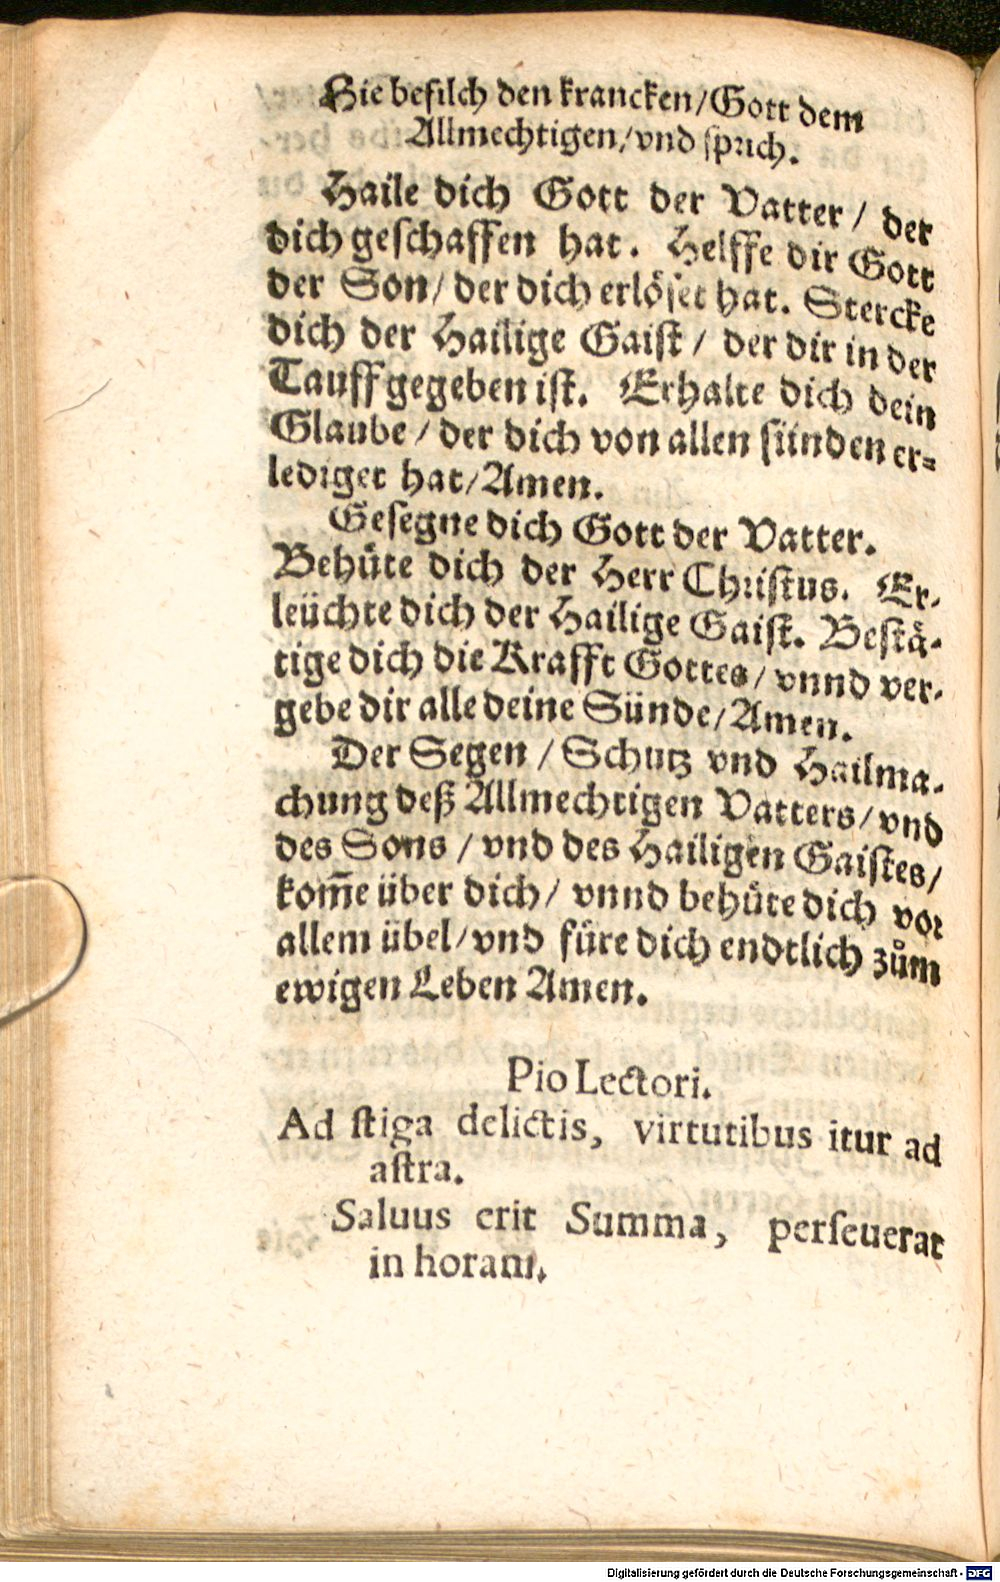 Hie befilch den krancken/Gott dem
Allmechtigen/vnd sprich.
Haile dich Gott der Vatter/ der
dich geschaffen hat. Helffe dir Gott
der Son/ der dich erlöset hat. Stercke
dich der Hailige Gaist/ der dir in der
Tauff gegeben ist. Erhalte dich dein
Glaube/ der dich von allen sünden er=
lediget hat/Amen.
Gesegne dich Gott der Vatter.
Behüte dich der Herr Christus. Er-
leüchte dich der Hailige Gaist. Bestä-
tige dich die Krafft Gottes/ vnnd ver-
gebe dir alle deine Sünde/Amen.
Der Segen/ Schutz vnd Hailma-
chung deß Allmechtigen Vatters/vnd
des Sons/ vnd des Hailigen Gaistes/
kom̄e über dich/ vnnd behüte dich vor
allem übel/vnd füre dich endtlich zům
ewigen Leben Amen.
Pio Lectori.
Ad stiga delictis, virtutibus itur ad
astra.
Saluus erit Summa, perseuerat
in horam.
Digitalisierung gefördert durch die Deutsche Forschungsgemeinschaft - DFG